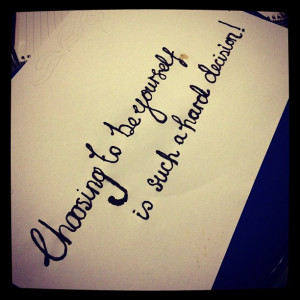 Choosing to be yourself
is such a hard decision!